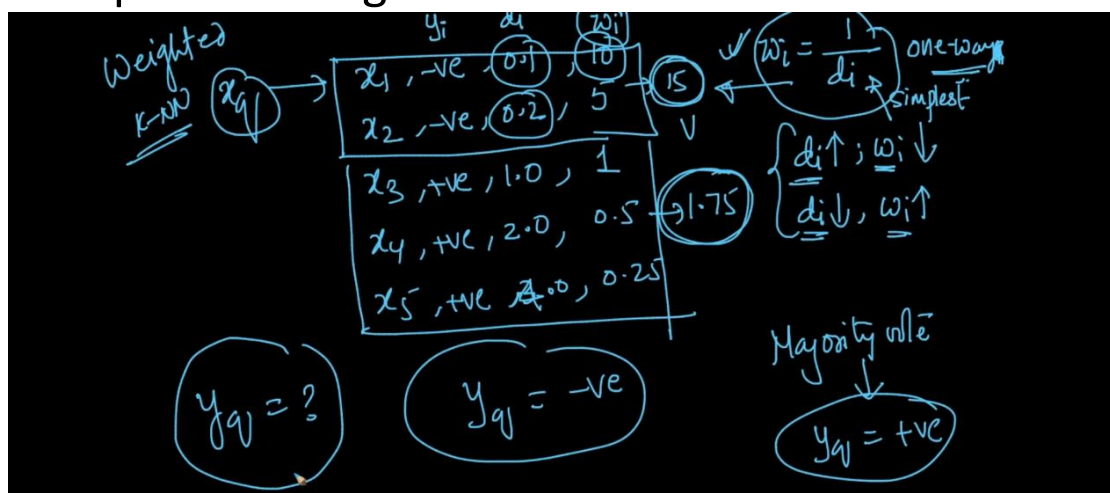 Weighted
K-NN
xq
yi di wi
x1, -ve, 0.1, 10
x2, -ve, 0.2, 5
15
x3, +ve, 1.0, 1
x4, +ve, 2.0, 0.5
1.75
x5, +ve 4.0, 0.25
wi = 1/di
one-way
simplest
di↑; wi↓
di↓, wi↑
yq = ?
yq = -ve
Majority vote
yq = +ve